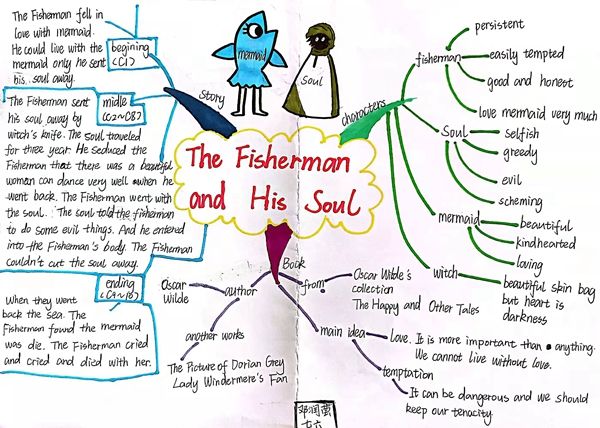 The Fisherman fell in
love with mermaid.
He could live with the
mermaid only he sent
his soul away.
begining
(C1)
The Fisherman sent
his soul away by
witch's knife. The soul traveled
for three year. He seduced the
Fisherman that there was a beautiful
women can dance very well when he
went back. The Fisherman went with
the soul. The soul told the fisherman
to do some evil things. And he entered
into the Fisherman's body. The Fisherman
couldn't cut the soul away.
midle
(C2~C8)
ending
(C9~10)
When they went
back the sea. The
Fisherman found the mermaid
was die. The Fisherman cried
and cried and died with her.
Story
mermaid
Soul
The Fisherman
and His Soul
characters
fisherman
persistent
easily tempted
good and honest
love mermaid very much
Soul
selfish
greedy
evil
scheming
mermaid
beautiful
kindhearted
loving
witch
beautiful skin bag
but heart is
darkness
Book
author
Oscar
Wilde
another works
The Picture of Dorian Grey
Lady Windermere's Fan
from
Oscar Wilde's
collection
The Happy and Other Tales
main idea
Love. It is more important than anything.
We cannot live without love.
temptation
It can be dangerous and we should
keep our tenacity
邓润萤
七六